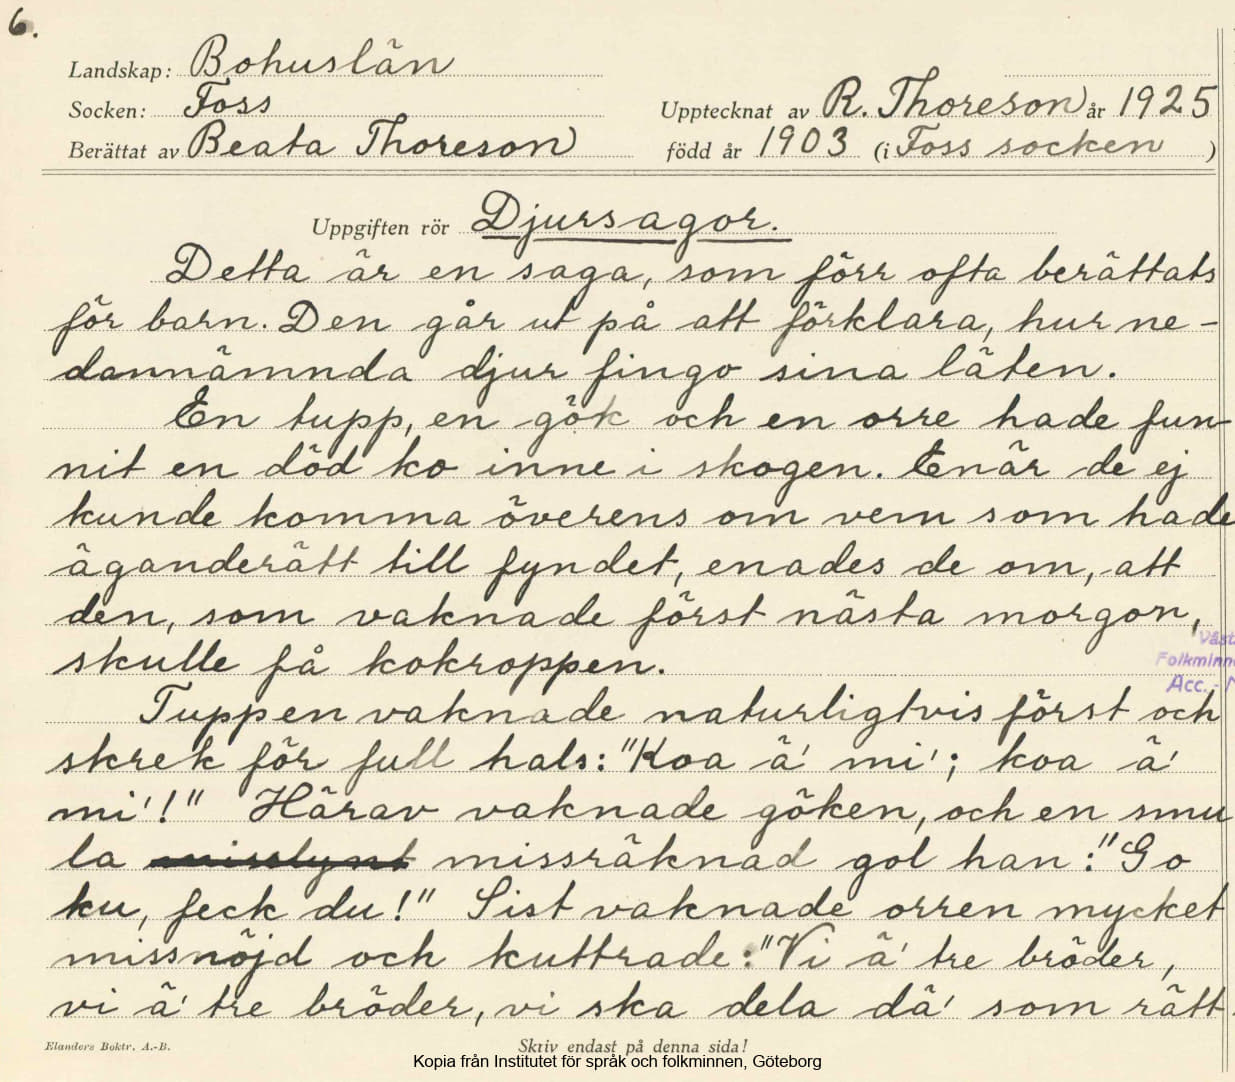 6.
Landskap: Bohuslän
Socken: Foss
Upptecknat av R. Thoreson år 1925
Berättat av Beata Thoreson
född år 1903 (i Foss socken )
Uppgiften rör Djursagor.
Detta är en saga, som förr ofta berättats
för barn. Den går ut på att förklara, hur ne-
dannämnda djur fingo sina läten.
En tupp, en gök och en orre hade fun-
nit en död ko inne i skogen. Enär de ej
kunde komma överens om vem som hade
äganderätt till fyndet, enades de om, att
den, som vaknade först nästa morgon,
skulle få kokroppen.
Väst
Folkminn
Acc. - N
Tuppen vaknade naturligtvis först och
skrek för full hals: "Koa ä' mi'; koa ä'
mi'!" Härav vaknade göken, och en smu
la misslynt missräknad gol han: "Go
ku, feck du!" Sist vaknade orren mycket
missnöjd och kuttrade: "Vi ä' tre bröder,
vi ä' tre bröder, vi ska dela dä' som rätt
Elanders Boktr. A.-B.
Skriv endast på denna sida!
Kopia från Institutet för språk och folkminnen, Göteborg